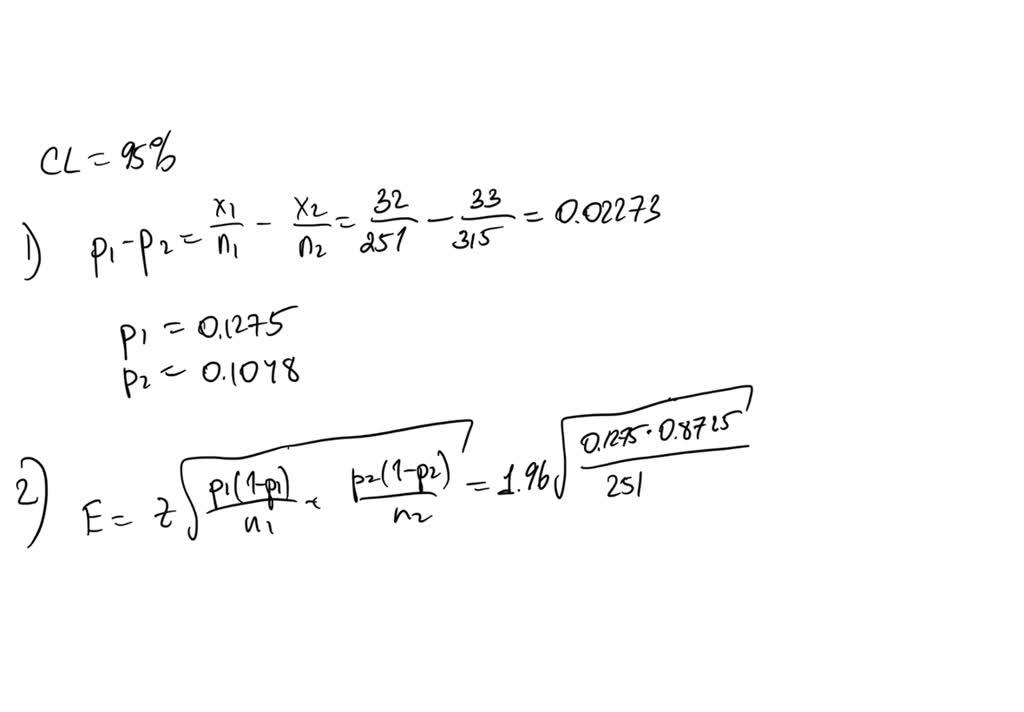 CL = 95%
1) p1 - p2 = x1/n1 - x2/n2 = 32/251 - 33/315 = 0.02273
p1 = 0.1275
p2 = 0.1048
2) E = z√(p1(1-p1)/n1 + p2(1-p2)/n2) = 1.96√(0.1275·0.8725/251)